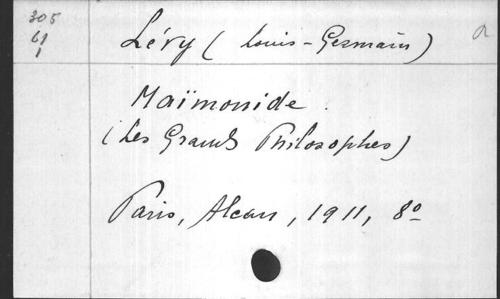 305
61
1
Lévy (Louis-Germain)
a
Maïmonide.
(Les Grands Philosophes)
Paris, Alcan, 1911, 8º